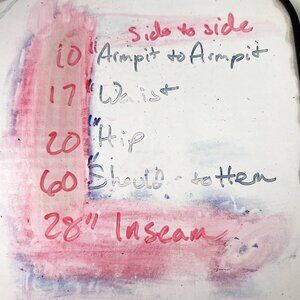 side to side
10" Armpit to Armpit
17" Waist
20" Hip
60" Should - to Hem
28" Inseam